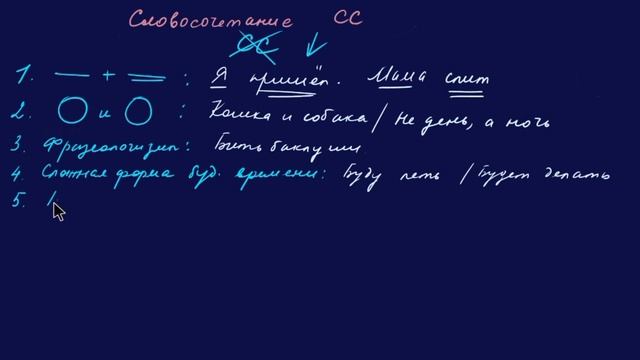 Словосочетание СС
СС
1. — + = : Я пришёл. Мама спит
2. О и О : Кошка и собака / Не день, а ночь
3. Фразеологизм: Бить баклуши
4. Сложная форма буд. времени: Буду петь / Будет делать
5.